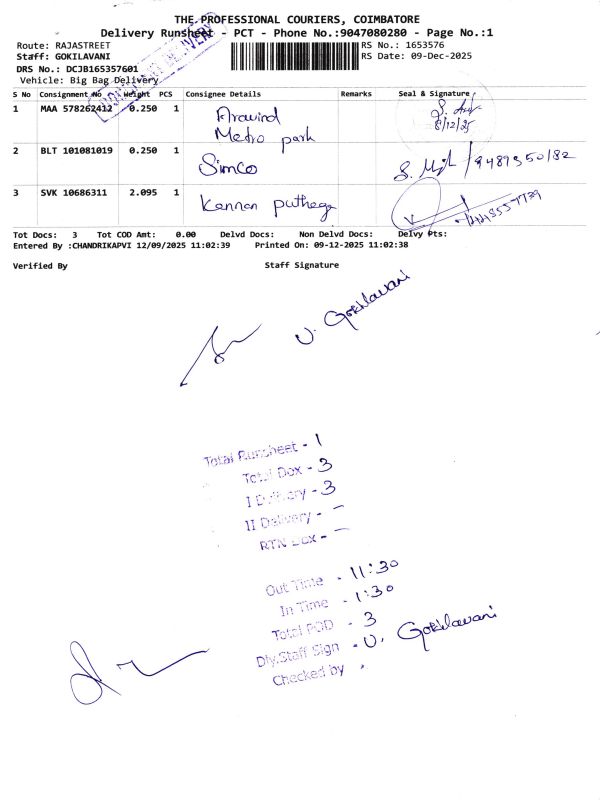 THE PROFESSIONAL COURIERS, COIMBATORE
Delivery Runsheet - PCT - Phone No.:9047080280 - Page No.:1
Route: RAJASTREET
RS No.: 1653576
Staff: GOKILAVANI
RS Date: 09-Dec-2025
DRS No.: DCJB165357601
Vehicle: Big Bag Delivery
DELIVERY
S No Consignment No Weight PCS Consignee Details Remarks Seal & Signature
1 MAA 578262412 0.250 1 Aravind
Metro park
8/12/25
2 BLT 101081019 0.250 1 Simco
3 SVK 10686311 2.095 1 Kannan puthega
Tot Docs: 3 Tot COD Amt: 0.00 Delvd Docs: Non Delvd Docs: Delvy Pts:
Entered By :CHANDRIKAPVI 12/09/2025 11:02:39 Printed On: 09-12-2025 11:02:38
Verified By Staff Signature
U. Gokilavani
Total Runsheet - 1
Total Dox - 3
I Delivery - 3
II Delivery - –
RTN Dox - –
Out Time - 11:30
In Time - 1:30
Total POD - 3
Dly.Staff Sign - U. Gokilavani
Checked by